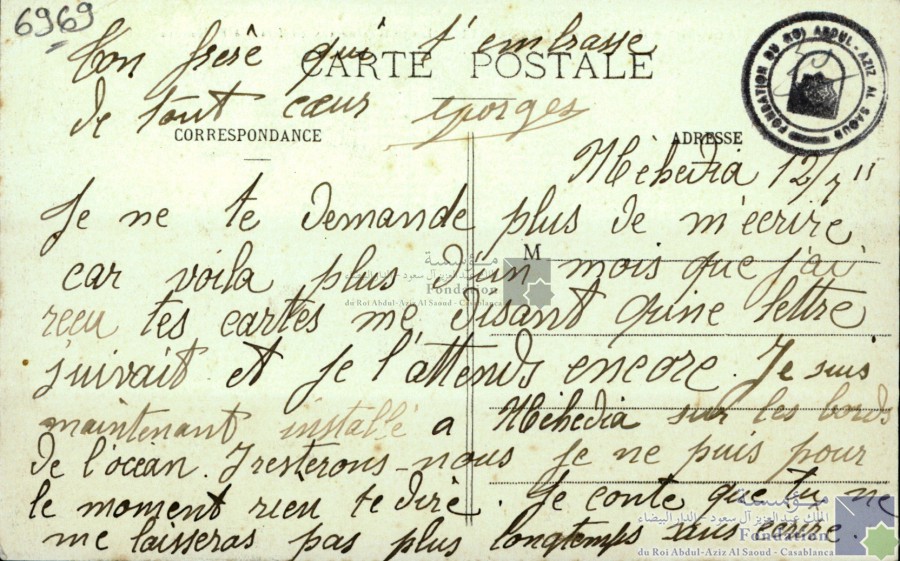 6969
Ton frère qui t'embrasse
CARTE POSTALE
de tout cœur Georges
CORRESPONDANCE
ADRESSE
FONDATION DU ROI ABDUL-AZIZ AL SAOUD
Méhedia 12/7 11
Je ne te demande plus de m'ecrire
M
car voila plus d'un mois que j'ai
reçu tes cartes me disant qu'ine lettre
suivait et je l'attends encore. Je suis
maintenant installé a Méhedia sur les bords
de l'océan. Y resterons-nous je ne puis pour
le moment rien te dire. Je conte que tu ne
me laisseras pas plus longtemps sans ecrire.
مؤسسة
الملك عبد العزيز آل سعود - الدار البيضاء
Fondation
du Roi Abdul-Aziz Al Saoud - Casablanca
مؤسسة
الملك عبد العزيز آل سعود - الدار البيضاء
Fondation
du Roi Abdul-Aziz Al Saoud - Casablanca